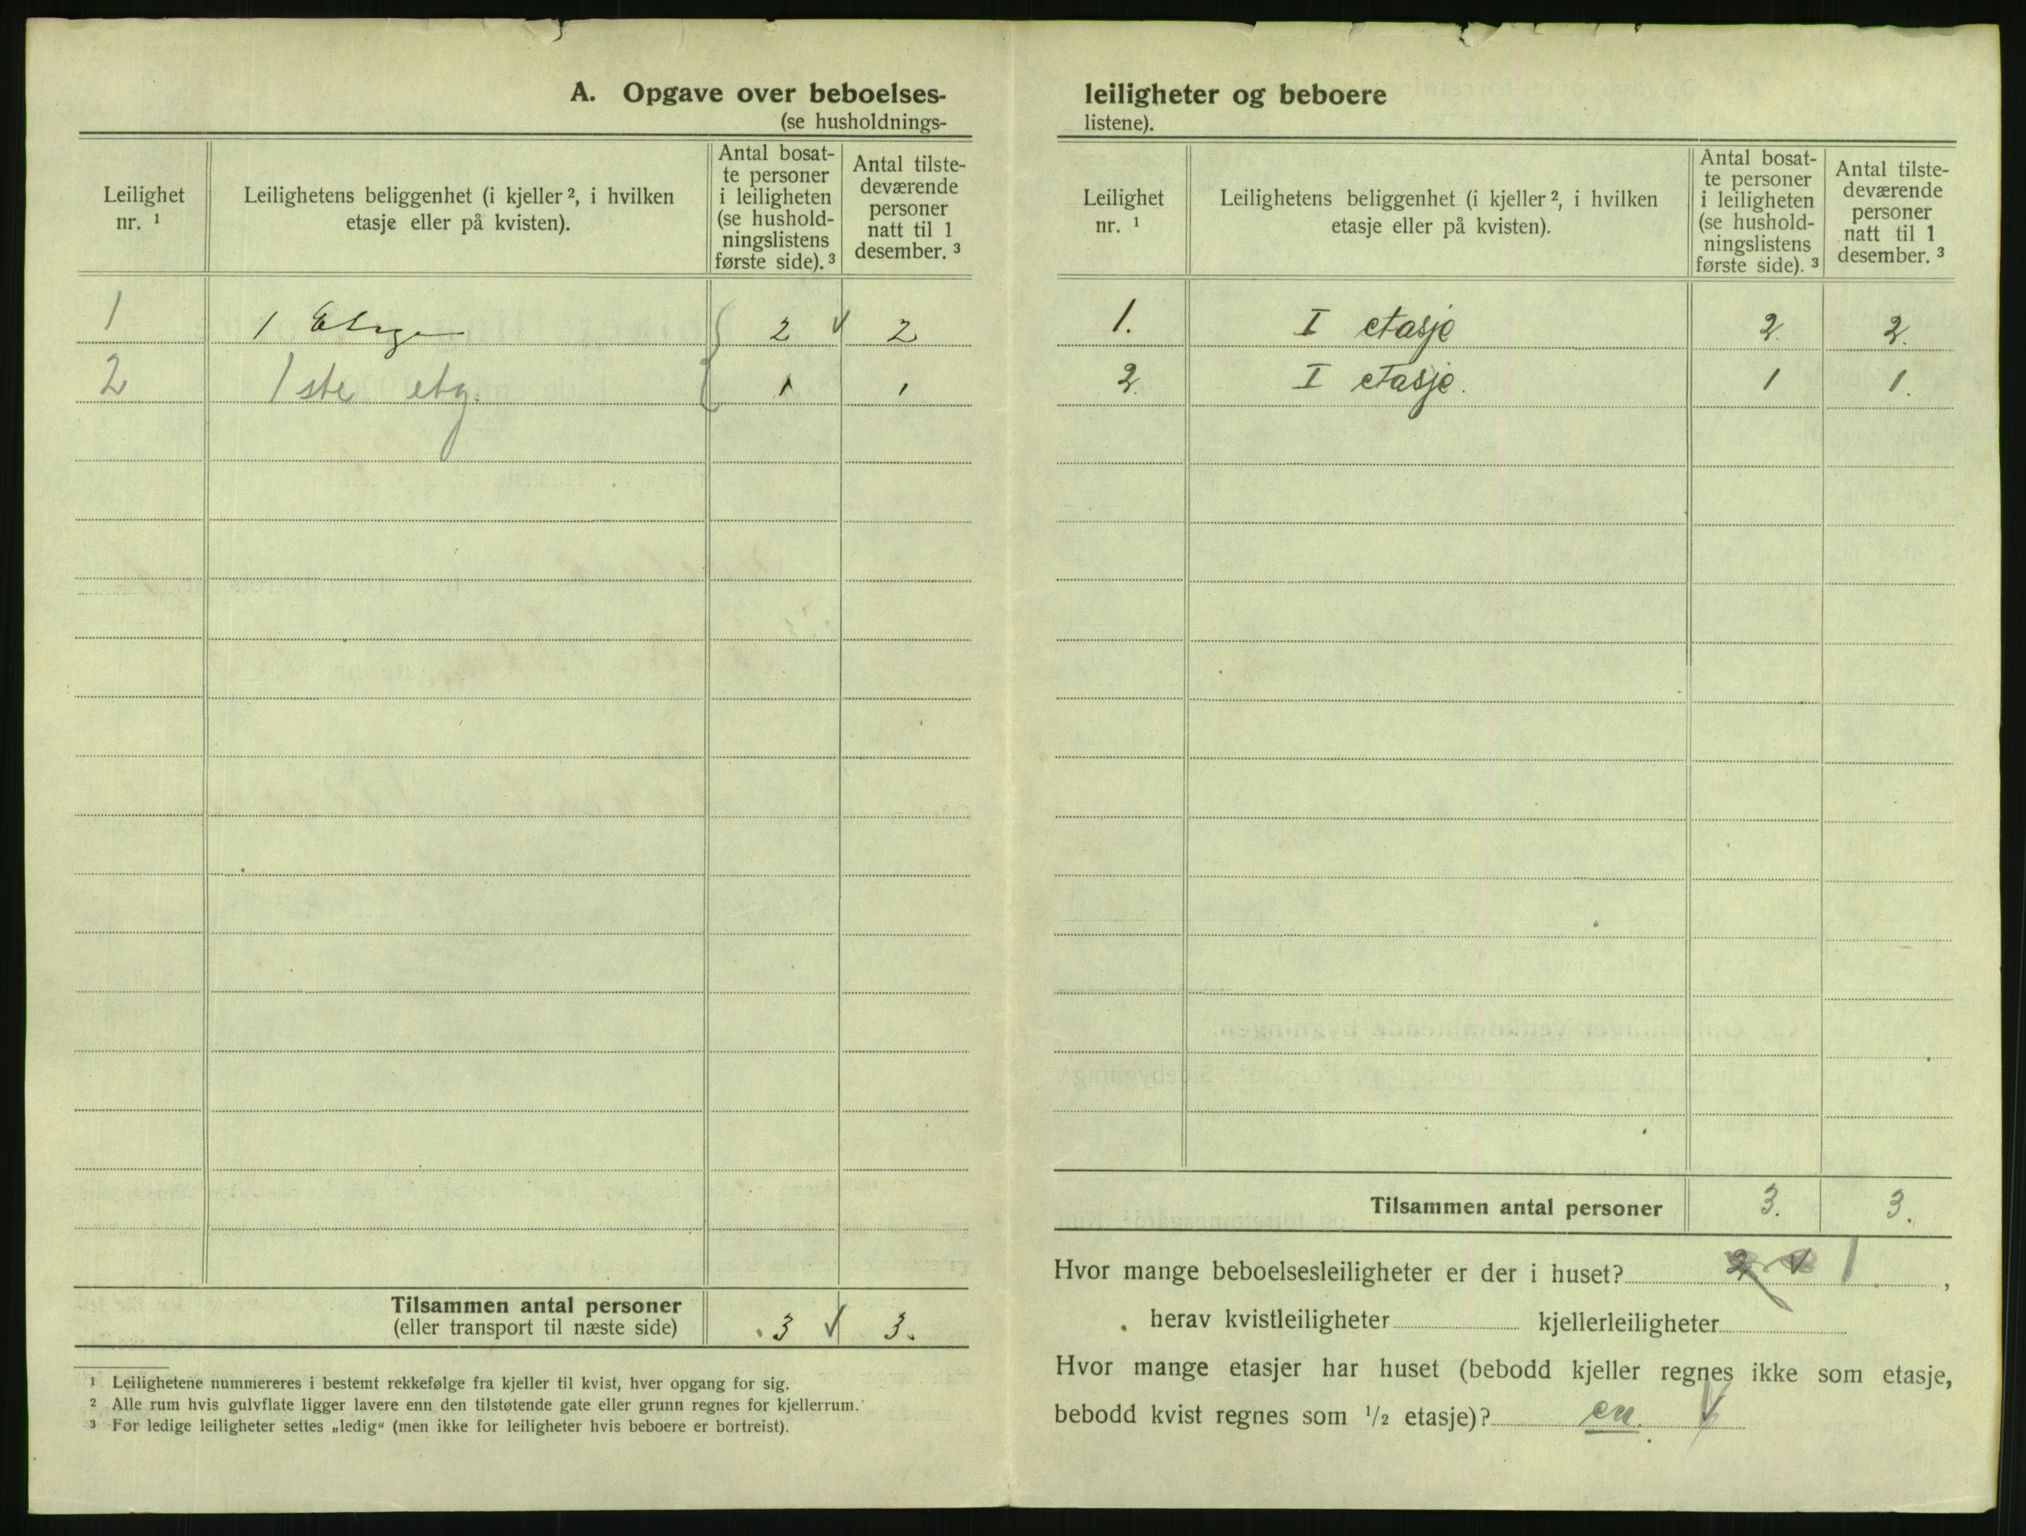 A. Opgave over beboelses-
(se husholdnings-
Leilighet nr. ¹
Leilighetens beliggenhet (i kjeller ², i hvilken etasje eller på kvisten).
Antal bosat-
te personer
i leiligheten
(se hushold-
ningslistens
første side). ³
Antal tilste-
deværende
personer
natt til 1
desember. ³
1 1 Etage 2 √ 2
2 1 ste etg. 1 1
Tilsammen antal personer
(eller transport til næste side) 3 √ 3.
¹ Leilighetene nummereres i bestemt rekkefølge fra kjeller til kvist, hver opgang for sig.
² Alle rum hvis gulvflate ligger lavere enn den tilstøtende gate eller grunn regnes for kjellerrum.
³ For ledige leiligheter settes „ledig“ (men ikke for leiligheter hvis beboere er bortreist).
leiligheter og beboere
listene).
Leilighet nr. ¹
Leilighetens beliggenhet (i kjeller ², i hvilken etasje eller på kvisten).
Antal bosat-
te personer
i leiligheten
(se hushold-
ningslistens
første side). ³
Antal tilste-
deværende
personer
natt til 1
desember. ³
1. I etasje 2. 2.
2. I etasje. 1 1.
Tilsammen antal personer 3. 3.
Hvor mange beboelsesleiligheter er der i huset? 2 √ 1.,
herav kvistleiligheter kjellerleiligheter
Hvor mange etasjer har huset (bebodd kjeller regnes ikke som etasje,
bebodd kvist regnes som ¹/₂ etasje)? en. √